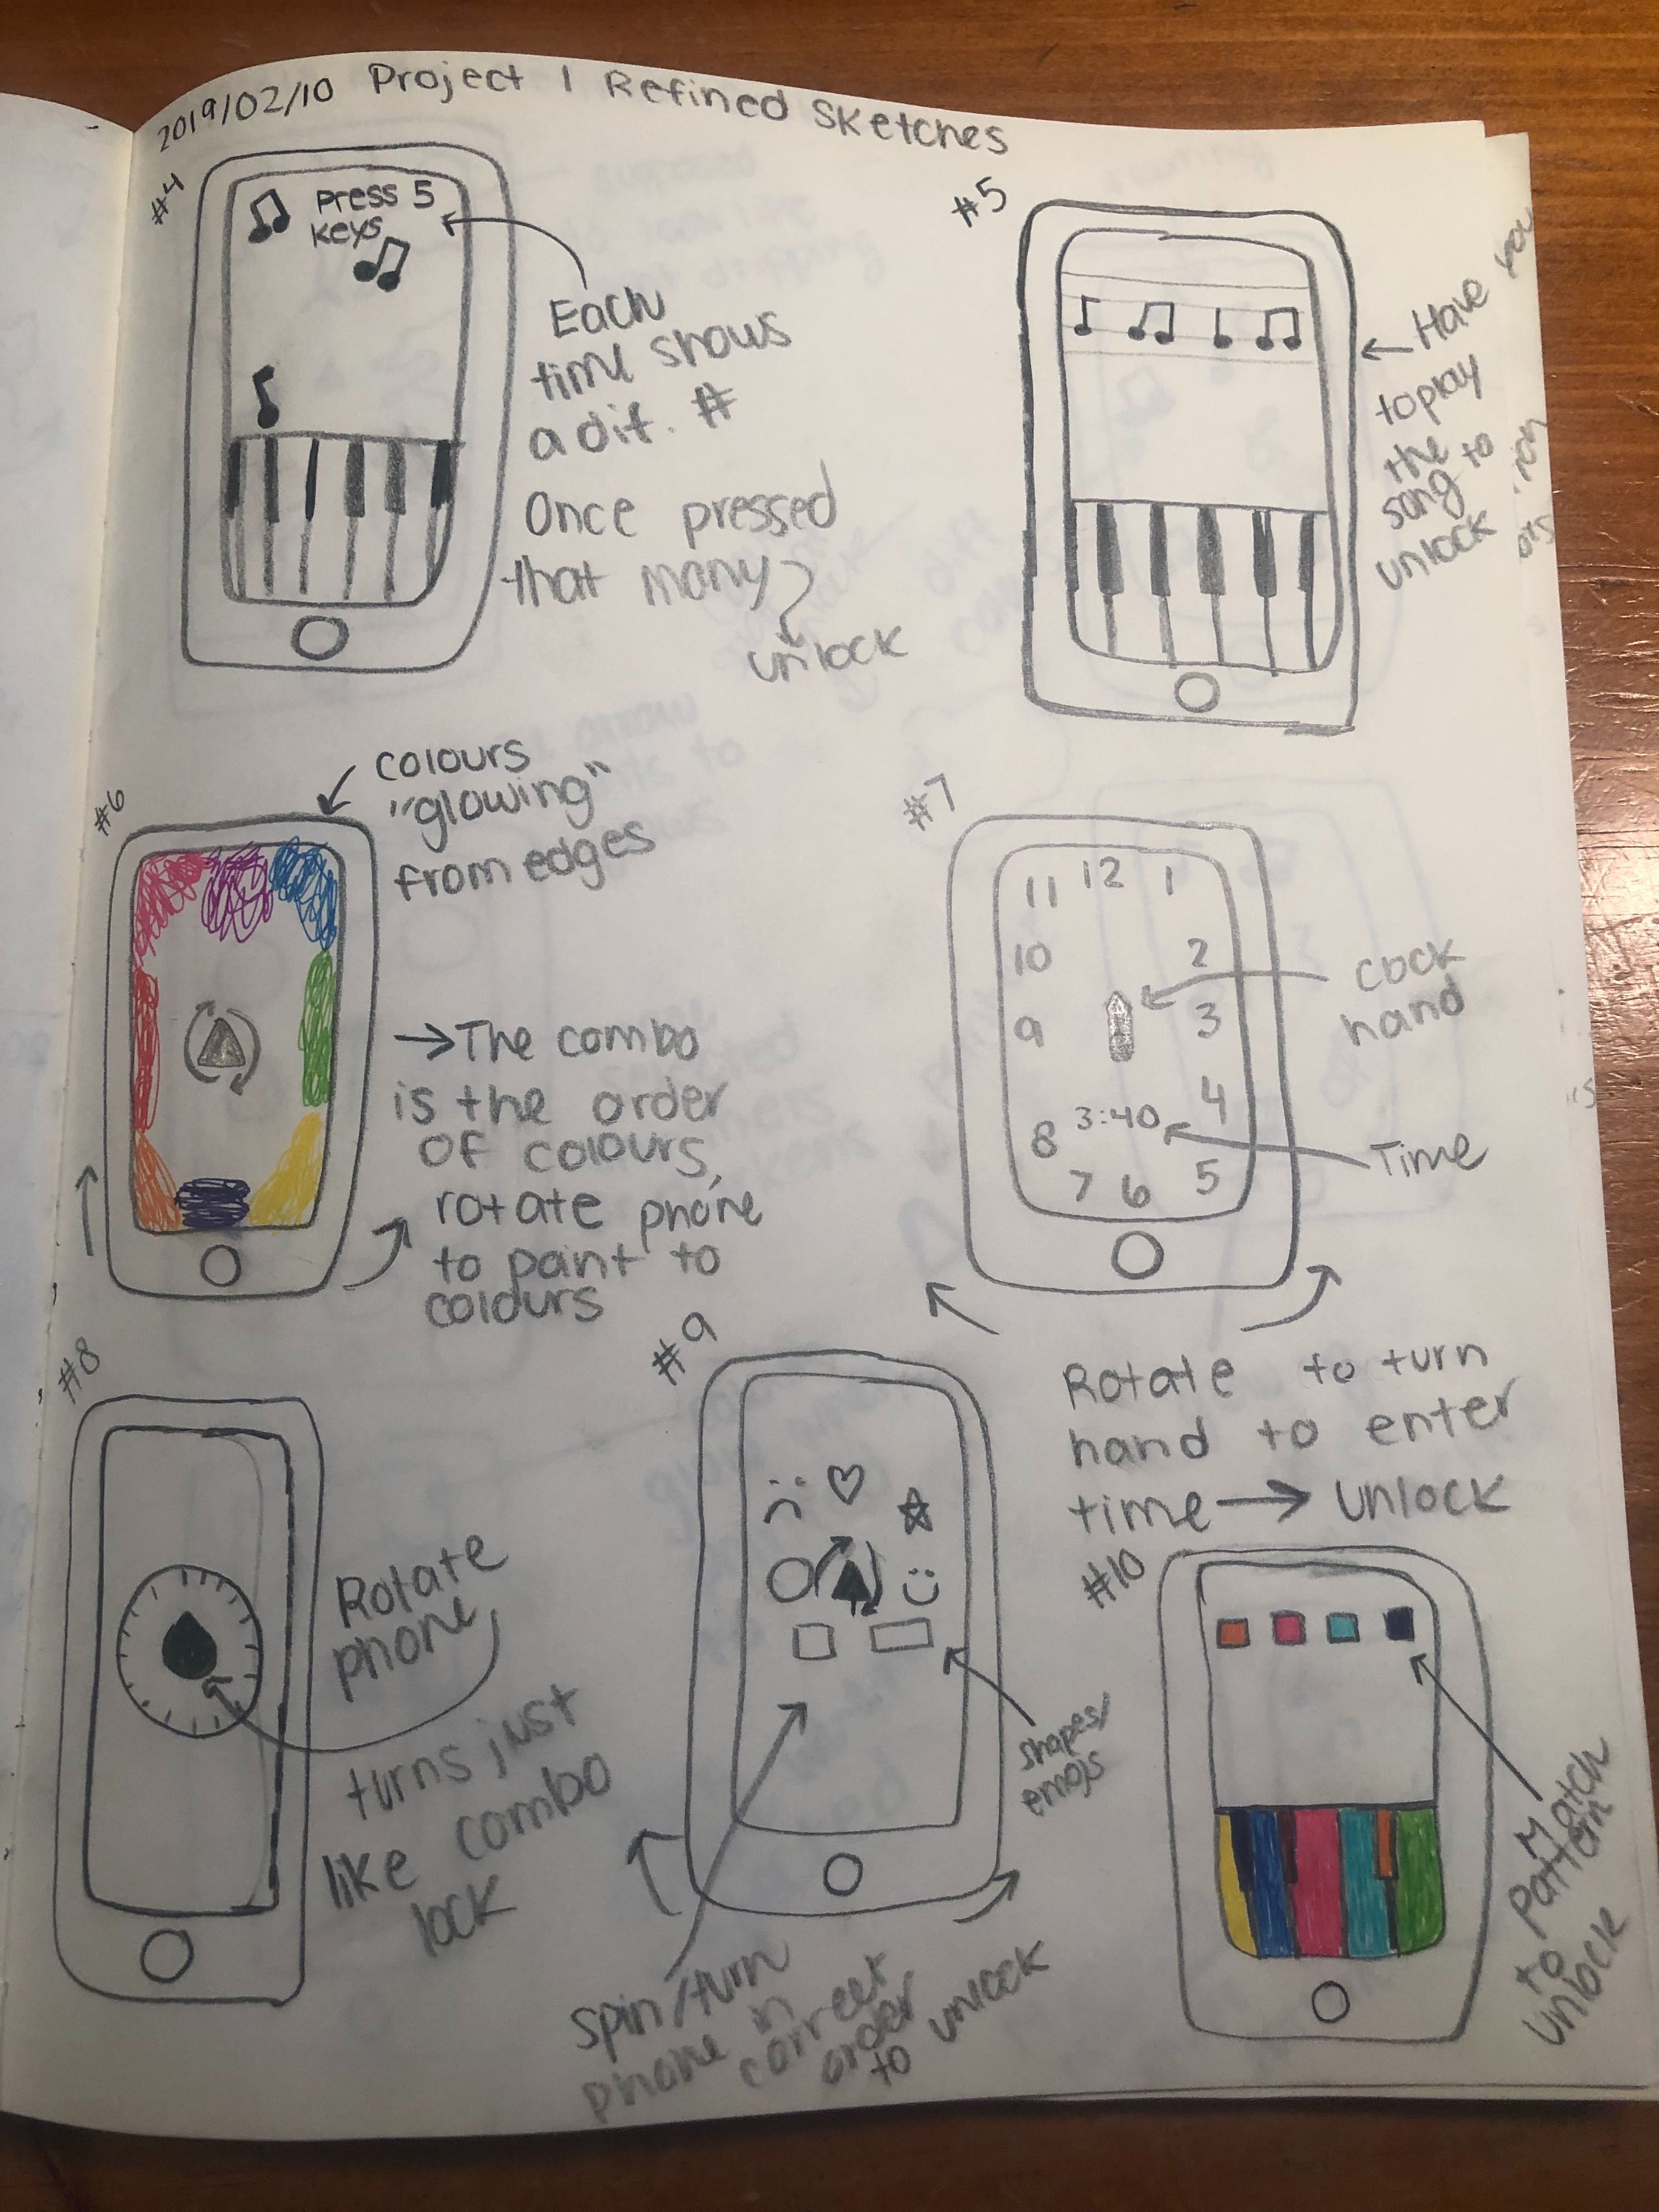 2019/02/10 Project 1 Refined Sketches
#4
Press 5
keys
Each
time shows
a dif. #
Once pressed
that many
unlock
#5
Have
to play
the
song to
unlock
#6
colours
"glowing"
from edges
The combo
is the order
of colours,
rotate phone
to point to
colours
#7
11 12 1
10 2
9 3
8 3:40 4
7 6 5
clock
hand
Time
Rotate to turn
hand to enter
time → unlock
#8
Rotate
phone
turns just
like combo
lock
#9
shapes/
emojis
spin/turn
phone in
correct
order
to unlock
#10
Match
Pattern
to
unlock